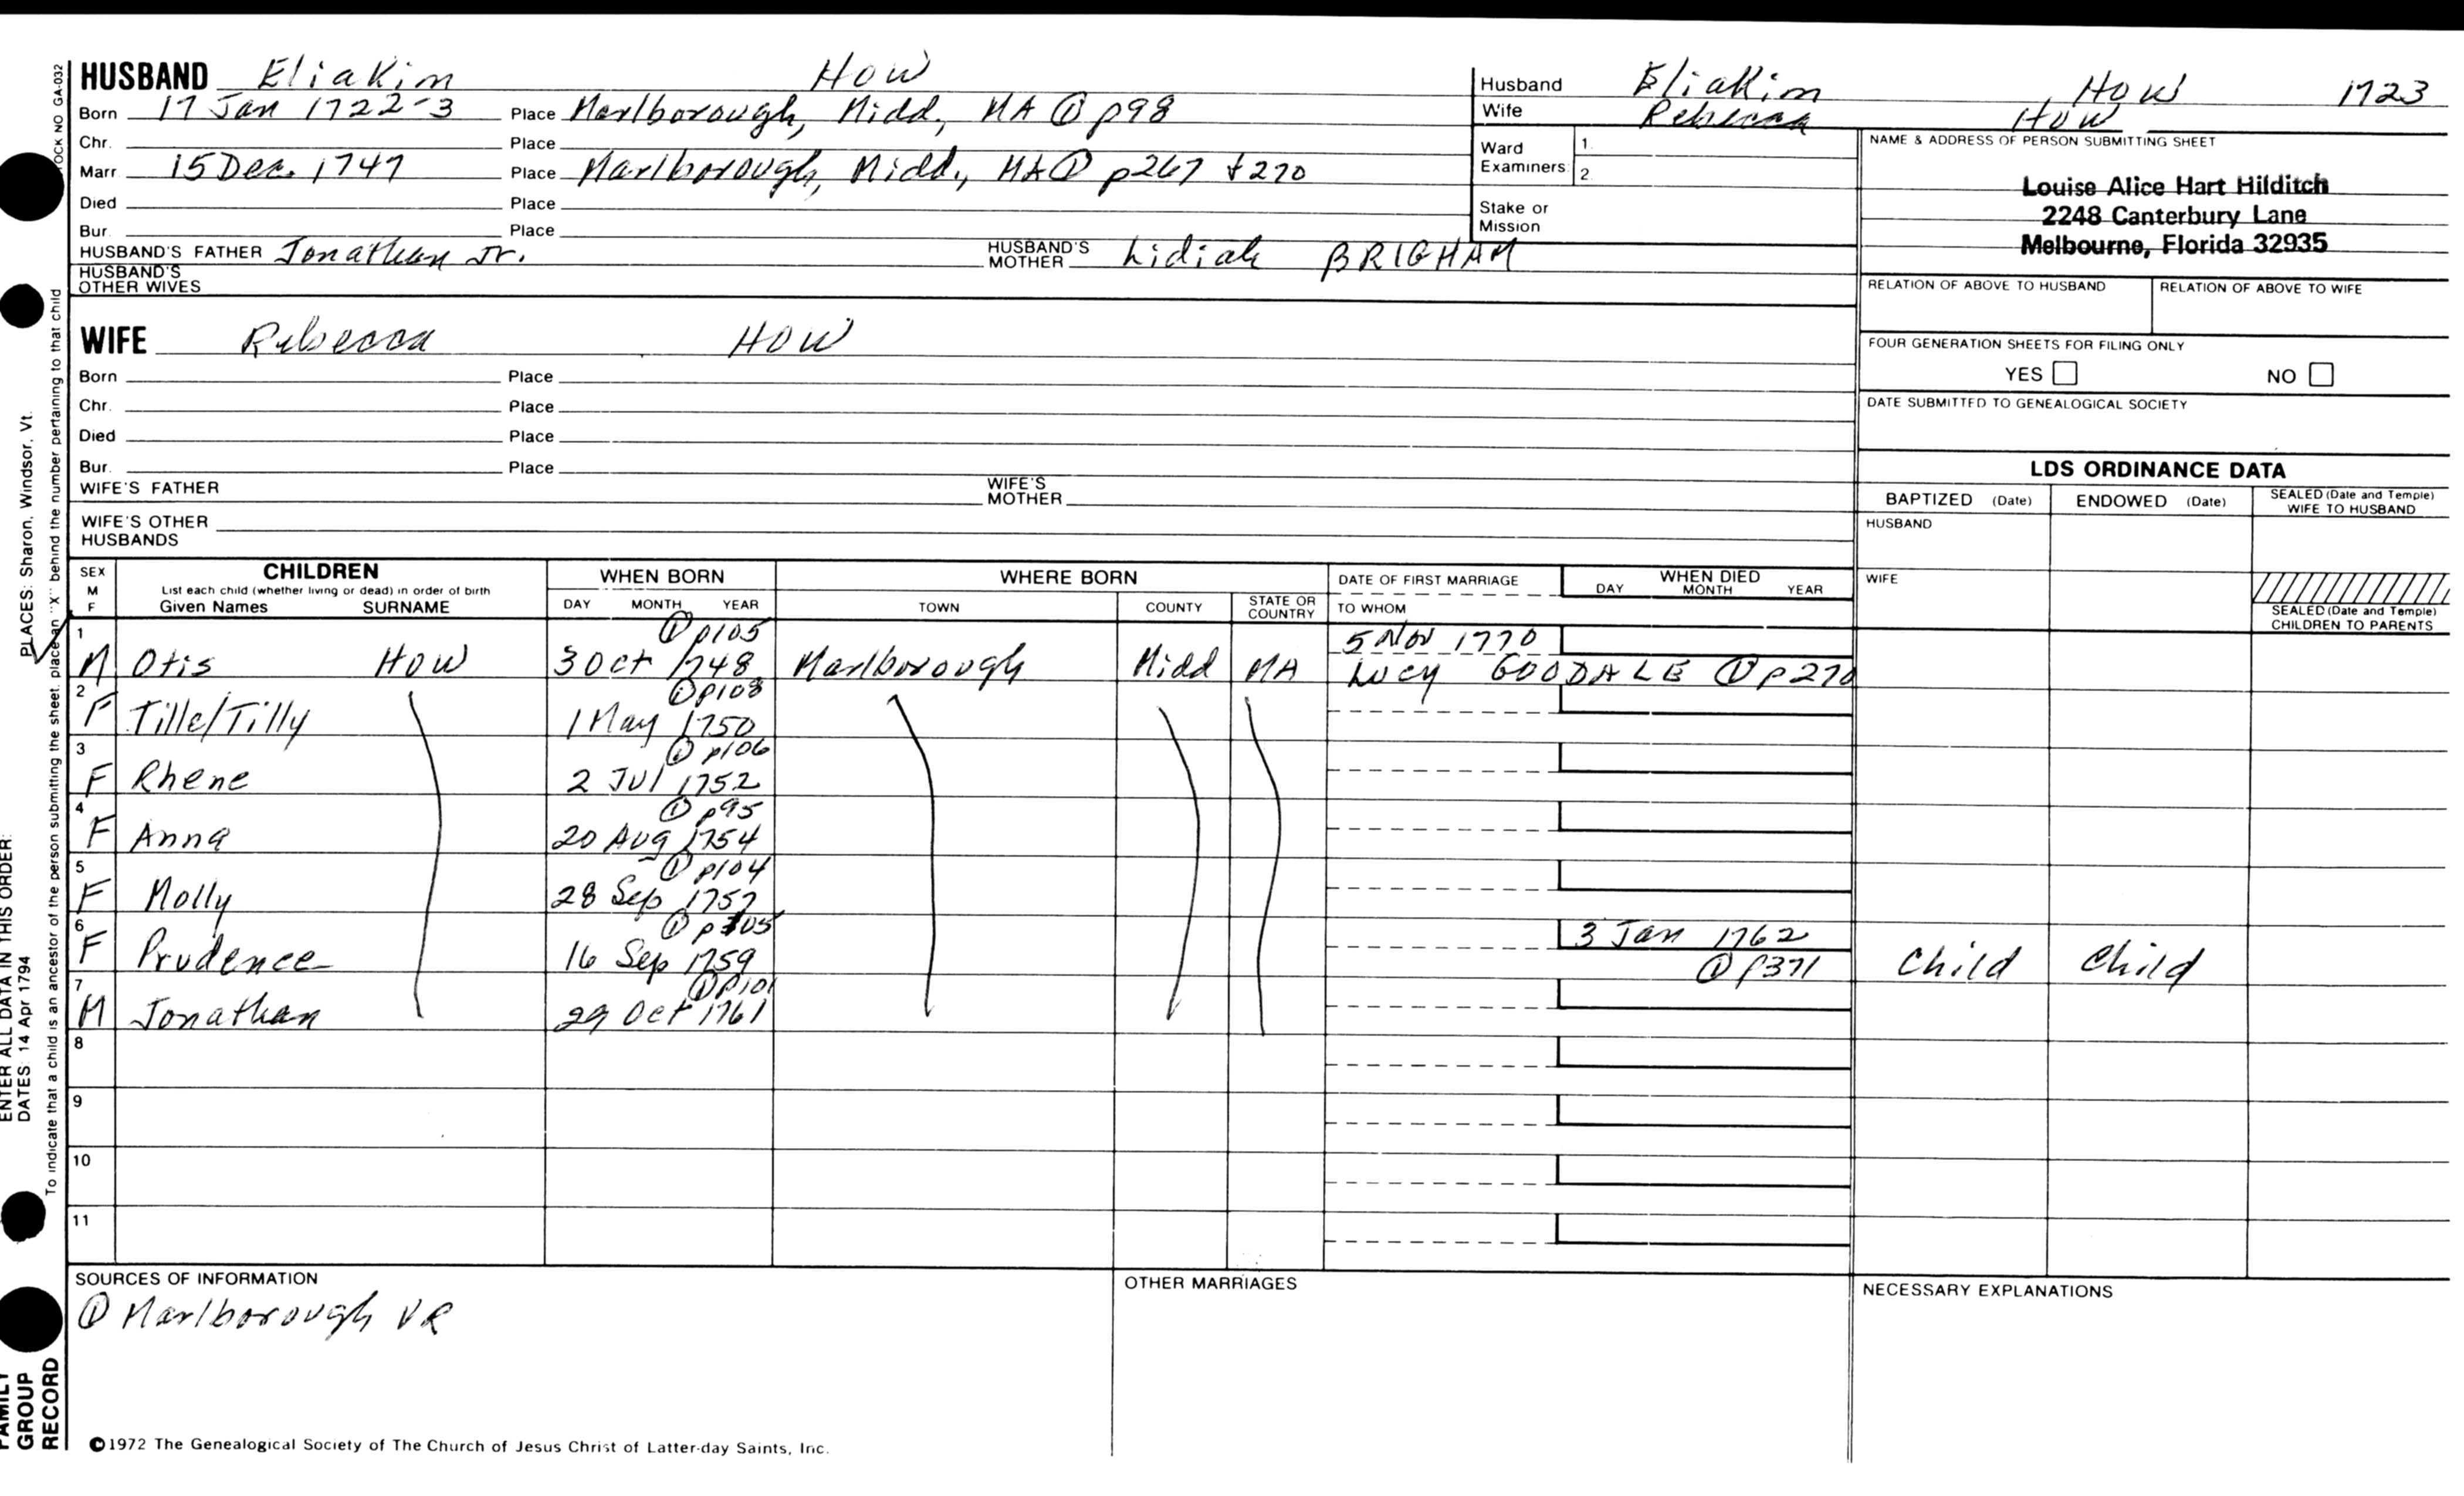 HUSBAND Eliakim How
Born 17 Jan 1722-3 Place Marlborough, Midd, MA ① p98
Chr. Place
Marr 15 Dec. 1747 Place Marlborough, Midd., MA ① p267 + 270
Died Place
Bur. Place
HUSBAND'S FATHER Jonathan Jr. HUSBAND'S MOTHER Lidiah BRIGHAM
HUSBAND'S OTHER WIVES
Husband Eliakim How 1723
Wife Rebecca How
Ward Examiners 1. 2.
Stake or Mission
NAME & ADDRESS OF PERSON SUBMITTING SHEET
Louise Alice Hart Hilditch
2248 Canterbury Lane
Melbourne, Florida 32935
RELATION OF ABOVE TO HUSBAND RELATION OF ABOVE TO WIFE
FOUR GENERATION SHEETS FOR FILING ONLY
YES NO
DATE SUBMITTED TO GENEALOGICAL SOCIETY
WIFE Rebecca How
Born Place
Chr. Place
Died Place
Bur. Place
WIFE'S FATHER WIFE'S MOTHER
WIFE'S OTHER HUSBANDS
LDS ORDINANCE DATA
BAPTIZED (Date) ENDOWED (Date) SEALED (Date and Temple) WIFE TO HUSBAND
HUSBAND
WIFE
SEALED (Date and Temple) CHILDREN TO PARENTS
SEX M F
CHILDREN
List each child (whether living or dead) in order of birth
Given Names SURNAME
WHEN BORN
DAY MONTH YEAR
WHERE BORN
TOWN COUNTY STATE OR COUNTRY
DATE OF FIRST MARRIAGE
TO WHOM
WHEN DIED
DAY MONTH YEAR
① p105 5 Nov 1770
1 M Otis How 3 Oct 1748 Marlborough Midd MA Lucy GOODALE ① p270
① p108
2 F Tille/Tilly 1 May 1750
① p106
3 F Rhene 2 Jul 1752
① p95
4 F Anna 20 Aug 1754
① p104
5 F Molly 28 Sep 1757
① p105 3 Jan 1762
6 F Prudence 16 Sep 1759 ① p371 Child Child
① p101
7 M Jonathan 29 Oct 1761
8
9
10
11
SOURCES OF INFORMATION
① Marlborough VR
OTHER MARRIAGES
NECESSARY EXPLANATIONS
©1972 The Genealogical Society of The Church of Jesus Christ of Latter-day Saints, Inc.
FAMILY GROUP RECORD
ENTER ALL DATA IN THIS ORDER:
DATES: 14 Apr 1794
PLACES: Sharon, Windsor, Vt.
To indicate that a child is an ancestor of the person submitting the sheet, place an "X" behind the number pertaining to that child
OCK NO GA-032